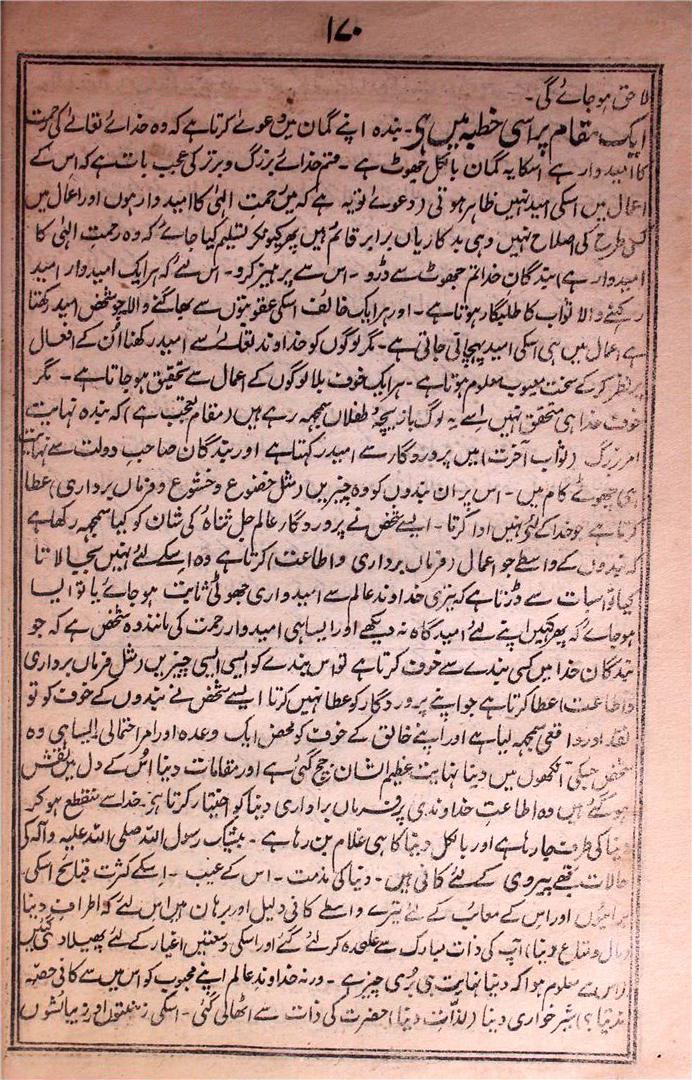 ۱۷۰
لاحق ہوجائے گی۔
ایک مقام پر اسی خطبہ میں ہی۔ بندہ اپنے گمان میں دعوے کرتا ہے کہ وہ خدائے تعالےٰ کی رحمت
کا امیدوار ہے اسکا یہ گمان بالکل جھوٹ ہے۔ قسم خدائے بزرگ و برتر کی عجب بات ہے کہ اس کے
اعمال میں اسکی امید نہیں ظاہر ہوتی (دعوے تو یہ ہے کہ میں رحمت الہٰی کا امیدوار ہوں اور اعمال میں
کسی طرح کی اصلاح نہیں وہی بدکاریاں برابر قائم ہیں پھر کیونکر تسلیم کیا جائے کہ وہ رحمت الہٰی کا
امیدوار ہے) بندگان خدا تم جھوٹ سے ڈرو۔ اس سے پرہیز کرو۔ اس لئے کہ ہر ایک امیدوار امید
رکھنے والا ثواب کا طلبگار ہوتا ہے۔ اور ہر ایک خائف اسکی عقوبتوں سے بھاگنے والا جو شخص امید رکھتا
ہے اعمال میں ہی اسکی امید پہچانی جاتی ہے۔ مگر لوگوں کو خداوند تعالےٰ سے امید رکھنا اُن کے افعال
پر نظر کرکے سخت معیوب معلوم ہوتا ہے۔ ہر ایک خوف بلا لوگوں کے اعمال سے تحقیق ہوجاتا ہے۔ مگر
خوف خدا ہی متحقق نہیں اسے یہ لوگ بازیچۂ طفلاں سمجہہ رہے ہیں (مقام تعجب ہے) کہ بندہ نہایت
امر بزرگ (ثواب آخرت) میں پروردگار سے امید رکہتا ہے اور بندگان صاحب دولت سے نہایت
ہی چھوٹے کام میں۔ اس پر ان بندوں کو وہ چیزیں (مثل خضوع و خشوع و فرماں برداری) عطا
کرتا ہے جو خدا کے لئے نہیں ادا کرتا۔ ایسے شخص نے پروردگار عالم جل ثناہٗ کی شان کو کیا سمجہہ رکھا ہے
کہ بندوں کے واسطے جو اعمال (فرماں برداری و اطاعت) کرتا ہے وہ اسکے لئے نہیں بجا لاتا
کیا تو اس بات سے ڈرتا ہے کہ تیری خداوند عالم سے امیدواری جھوٹی ثابت ہوجائے یا تو ایسا
ہوجائے کہ پھر کہیں اپنے لئے امیدگاہ نہ دیکھے اور ایسا ہی امیدوار رحمت کی مانند وہ شخص ہے کہ جو
بندگان خدا میں کسی بندے سے خوف کرتا ہے تو اس بندے کو ایسی ایسی چیزیں (مثل فرماں برداری
و اطاعت) عطا کرتا ہے جو اپنے پروردگار کو عطا نہیں کرتا ایسے شخص نے بندوں کے خوف کو تو
نقد اور واقعی سمجہہ لیا ہے اور اپنے خالق کے خوف کو محض ایک وعدہ اور امر احتمالی ایسا ہی وہ
شخص جسکی آنکھوں میں دینا نہایت عظیم الشان جچ گئی ہے اور مقامات دینا اُس کے دل میں نقش
ہوگئے ہیں وہ اطاعت خداوندی پر فرماں برداری دینا کو اختیار کرتا ہے خدا سے منقطع ہوکر
دینا کی طرف جا رہا ہے اور بالکل دینا کا ہی غلام بن رہا ہے۔ بیشک رسول اللہ صلی اللہ علیہ وآلہ کی
حالات تجھے پیروی کے لئے کافی ہیں۔ دینا کی مذمت۔ اس کے عیب۔ اسکے کثرت قبائح اسکی
برائیوں اور اس کے معائب کے لئے تیرے واسطے کافی دلیل اور برہان ہیں اس لئے کہ اطراف دینا
(مال و متاع دینا) آپ کی ذات مبارک سے علیحدہ کرلئے گئے اور اسکی وسعتیں اغیار کے لئے پھیلا دی گئیں
(اس سے معلوم ہوا کہ دینا نہایت ہی بُری چیز ہے۔ ورنہ خداوند عالم اپنے محبوب کو اس میں سے کافی حصّہ
نہ دیتا؟) شیر خواری دینا (لذّات دینا) حضرت کی ذات سے اٹھالی گئی۔ اسکی زینتوں اور زیبائشوں